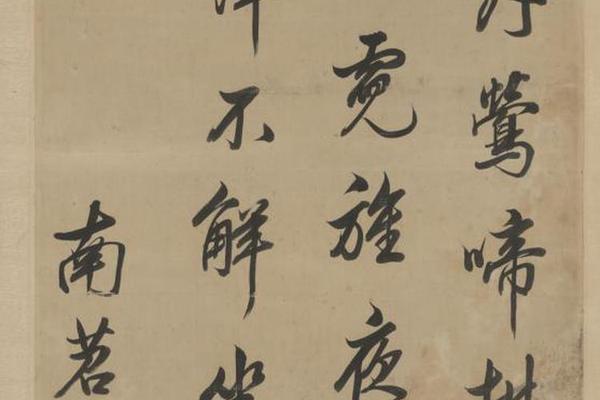 鶯啼
霓旌夜
不解
南茗